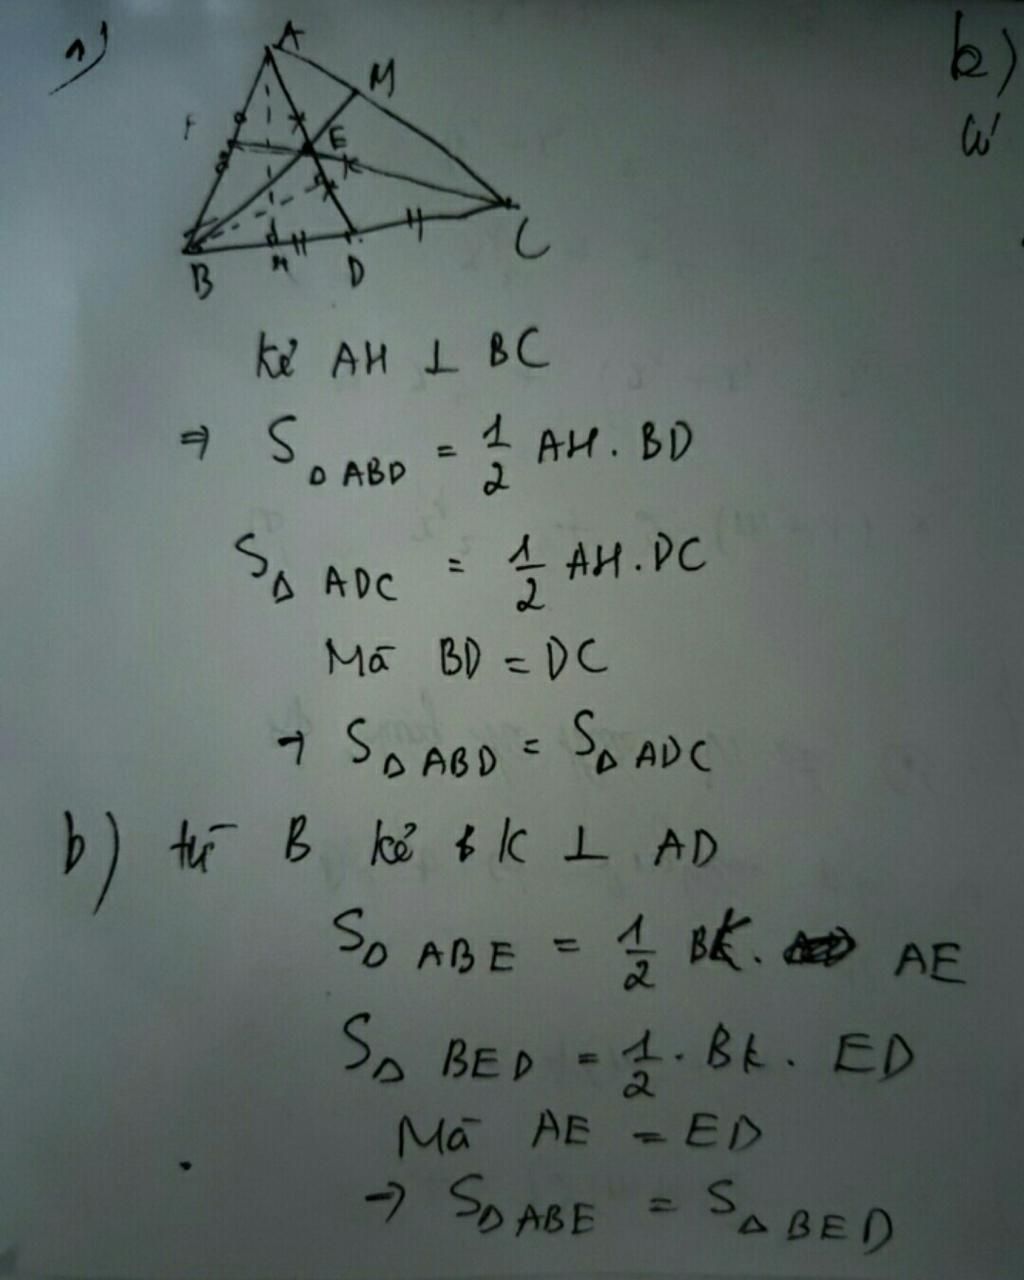 a)
b)
A
M
E
K
B
H
D
C
Kẻ AH ⊥ BC
⇒ S Δ ABD = 1/2 AH . BD
S Δ ADC = 1/2 AH . DC
Mà BD = DC
→ S Δ ABD = S Δ ADC
b) từ B kẻ BK ⊥ AD
S Δ ABE = 1/2 BK . AE
S Δ BED = 1/2 . BK . ED
Mà AE = ED
→ S Δ ABE = S Δ BED